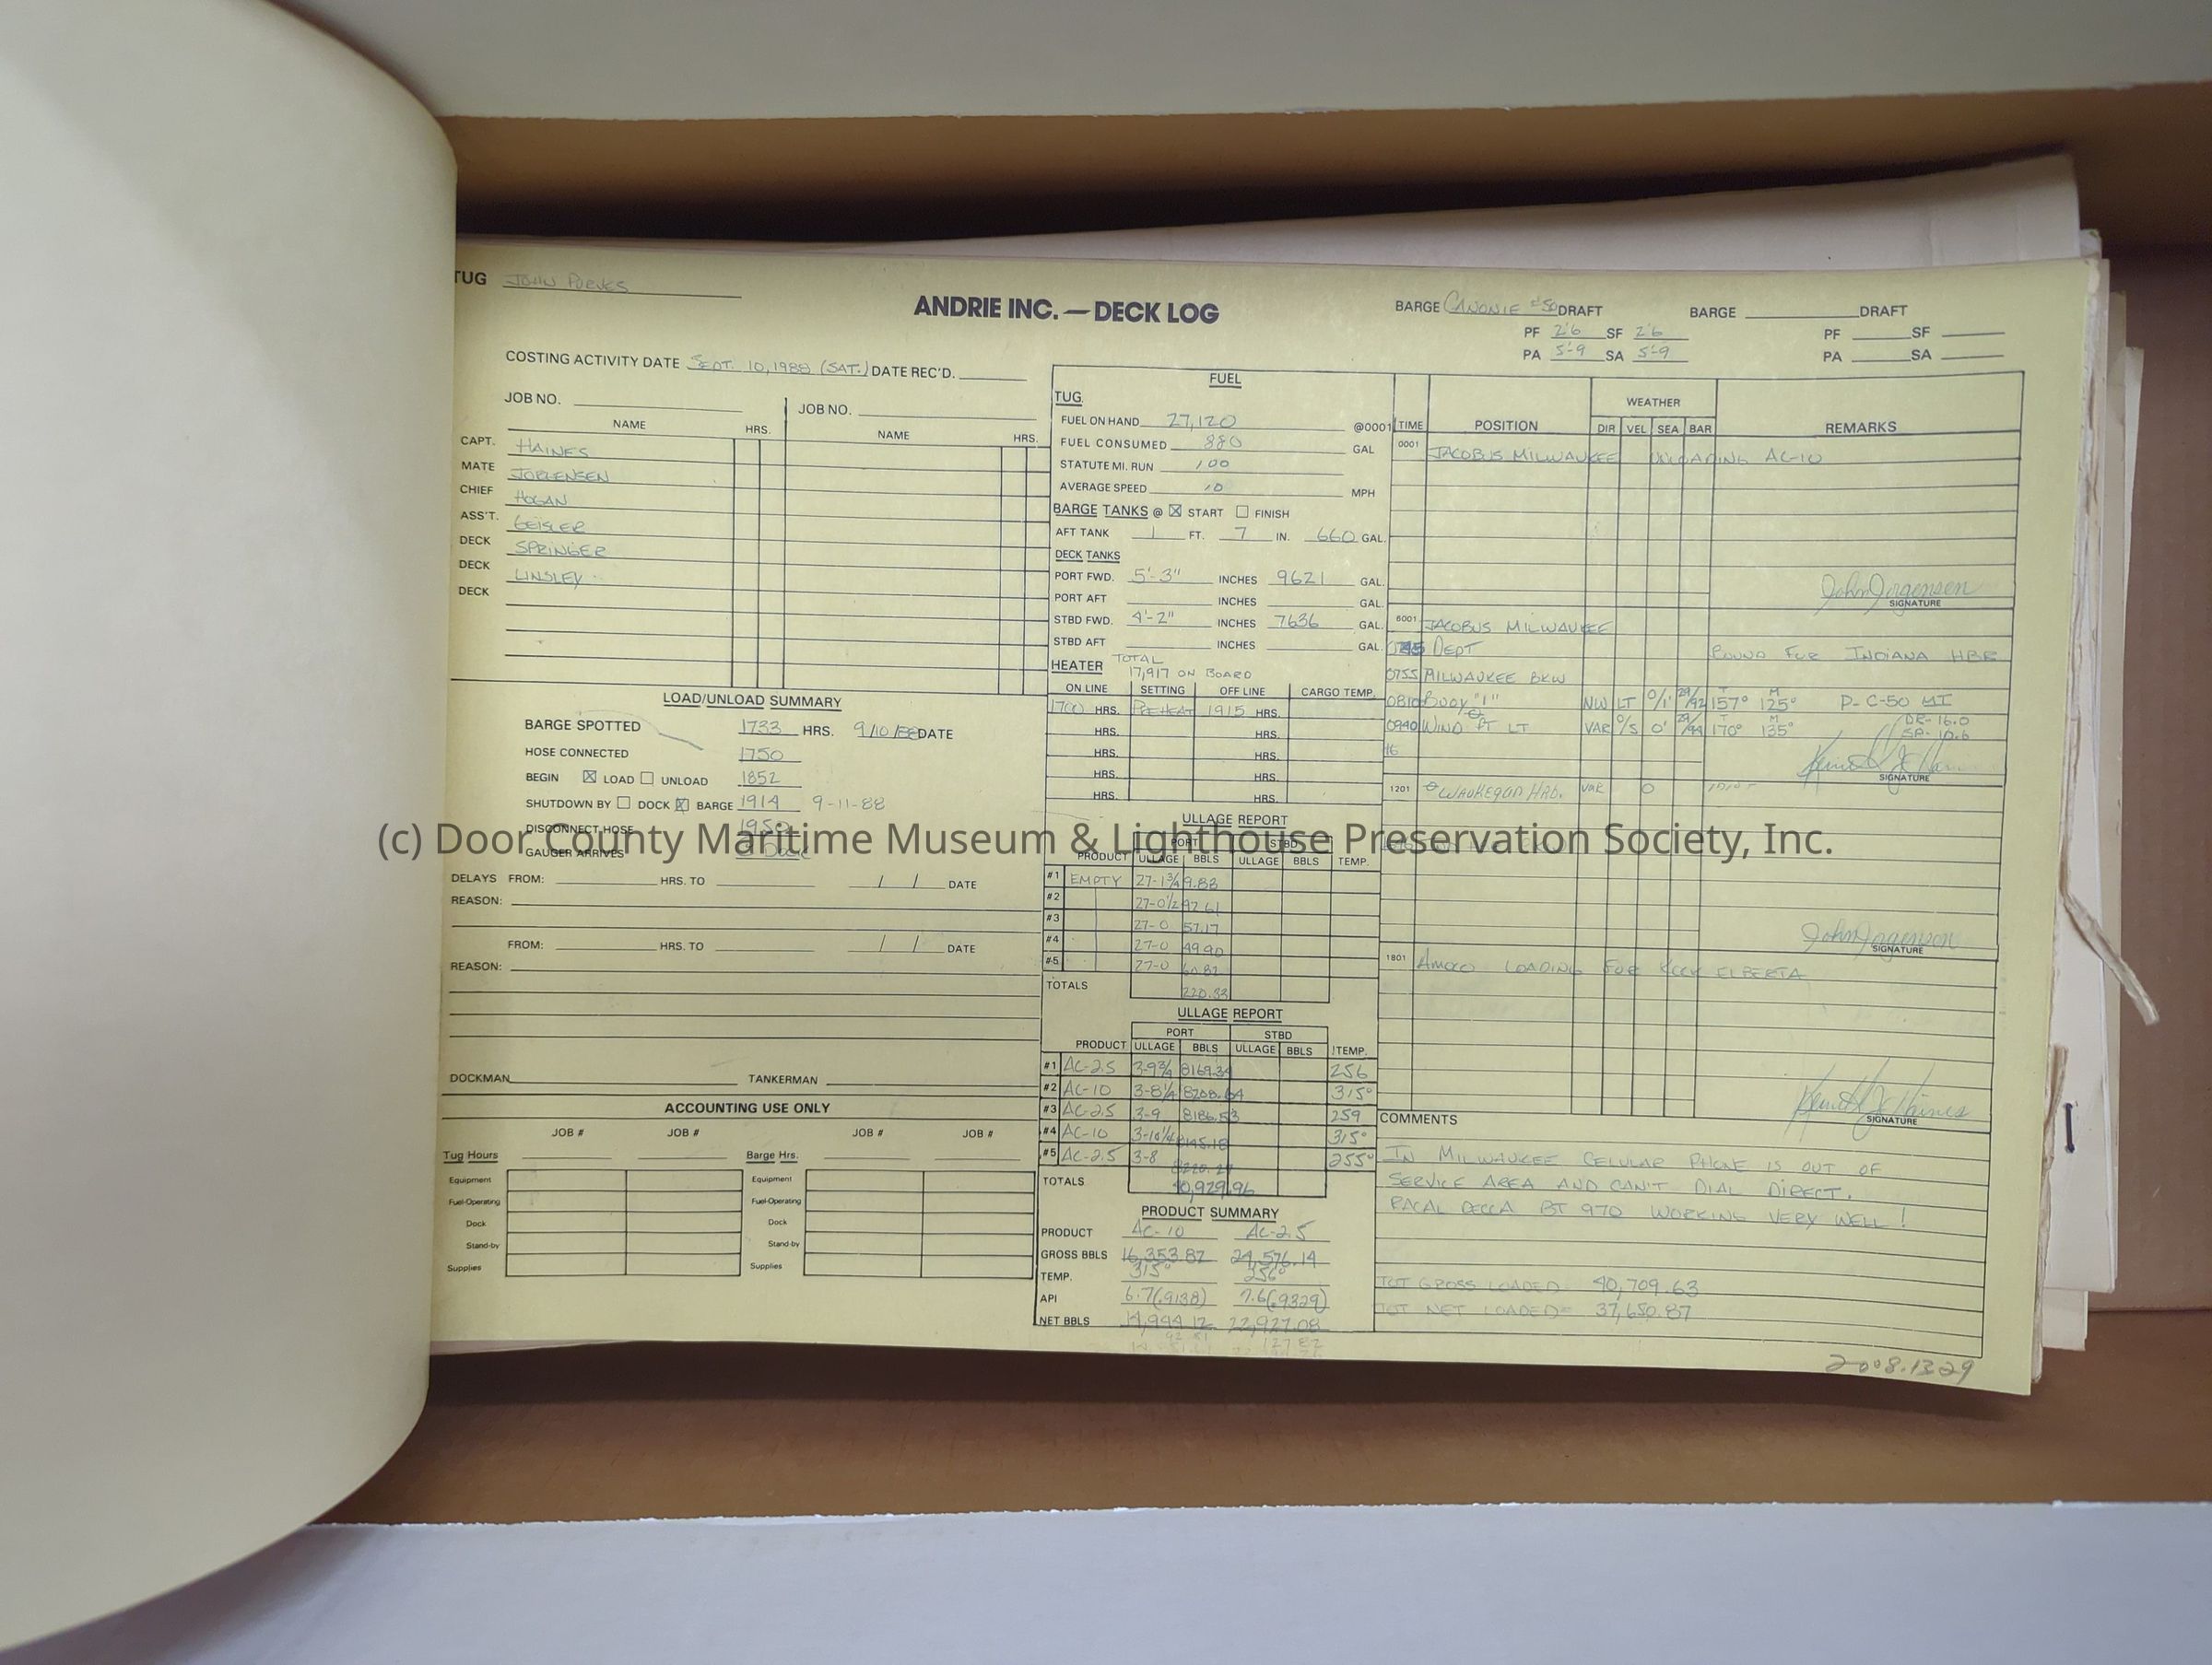 TUG JOHN PURVES
ANDRIE INC. — DECK LOG
BARGE CANONIE #50 DRAFT
PF 2'6 SF 2'6
PA 5'-9 SA 5'-9
BARGE DRAFT
PF SF
PA SA
COSTING ACTIVITY DATE SEPT. 10, 1988 (SAT.) DATE REC'D.
JOB NO. JOB NO.
NAME HRS. NAME HRS.
CAPT. HAINES
MATE JORGENSEN
CHIEF HOGAN
ASS'T. GEISLER
DECK SPRINGER
DECK LINSLEY
DECK
LOAD/UNLOAD SUMMARY
BARGE SPOTTED 1733 HRS. 9/10/88 DATE
HOSE CONNECTED 1750
BEGIN ☒ LOAD ☐ UNLOAD 1852
SHUTDOWN BY ☐ DOCK ☒ BARGE 1914 9-11-88
DISCONNECT HOSE 1950
GAUGER ARRIVES
DELAYS FROM: HRS. TO / / DATE
REASON:
FROM: HRS. TO / / DATE
REASON:
DOCKMAN TANKERMAN
ACCOUNTING USE ONLY
JOB # JOB # JOB # JOB #
Tug Hours Barge Hrs.
Equipment Equipment
Fuel-Operating Fuel-Operating
Dock Dock
Stand-by Stand-by
Supplies Supplies
FUEL
TUG
FUEL ON HAND 27,120 @0001
FUEL CONSUMED 880 GAL
STATUTE MI. RUN 100
AVERAGE SPEED 10 MPH
BARGE TANKS @ ☒ START ☐ FINISH
AFT TANK 1 FT. 7 IN. 660 GAL.
DECK TANKS
PORT FWD. 5'-3" INCHES 9621 GAL.
PORT AFT INCHES GAL.
STBD FWD. 4'-2" INCHES 7636 GAL.
STBD AFT INCHES GAL.
HEATER TOTAL
17,917 ON BOARD
ON LINE SETTING OFF LINE CARGO TEMP.
1700 HRS. PREHEAT 1915 HRS.
HRS. HRS.
HRS. HRS.
HRS. HRS.
HRS. HRS.
ULLAGE REPORT
PORT STBD
PRODUCT ULLAGE BBLS ULLAGE BBLS TEMP.
#1 EMPTY 27-1¾ 9.83
#2 27-0½ 47.61
#3 27-0 57.17
#4 27-0 49.90
#5 27-0 60.82
TOTALS 220.33
ULLAGE REPORT
PORT STBD
PRODUCT ULLAGE BBLS ULLAGE BBLS TEMP.
#1 AC-2.5 3-9¾ 8169.34 256
#2 AC-10 3-8¼ 8208.64 315°
#3 AC-2.5 3-9 8186.53 259
#4 AC-10 3-10¼ 8145.18 315°
#5 AC-2.5 3-8 8220.27 255°
TOTALS 40,929.96
PRODUCT SUMMARY
PRODUCT AC-10 AC-2.5
GROSS BBLS 16,353.82 24,576.14
TEMP. 315° 256°
API 6.7(.9138) 7.6(.9329)
NET BBLS 14,944.12 22,927.08
TIME POSITION WEATHER REMARKS
DIR VEL SEA BAR
0001 JACOBUS MILWAUKEE UNLOADING AC-10
John Jorgensen
SIGNATURE
6001 JACOBUS MILWAUKEE
DEPT BOUND FOR INDIANA HBR
0755 MILWAUKEE BKW
0810 BUOY "1" NW LT 0/1' 29/92 157° T 125° M P- C-50 MI
0940 WIND PT LT VAR 0/5 0' 29/94 170° T 135° M DR- 16.0
SA- 10.6
Kenneth J. Haines
SIGNATURE
1201 WAUKEGAN HRB. VAR 0
John Jorgenson
SIGNATURE
1801 AMOCO LOADING FOR KOCH ELBERTA
Kenneth J. Haines
SIGNATURE
COMMENTS
IN MILWAUKEE CELULAR PHONE IS OUT OF
SERVICE AREA AND CAN'T DIAL DIRECT.
RACAL DECCA BT 970 WORKING VERY WELL!
TOT GROSS LOADED: 40,709.63
TOT NET LOADED= 37,650.87
2008.1329
(c) Door County Maritime Museum & Lighthouse Preservation Society, Inc.